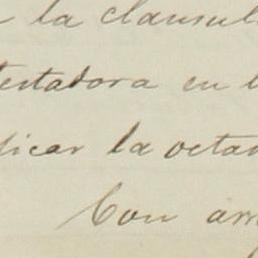 la clausul
testadora en l
icar la octa
Con arr